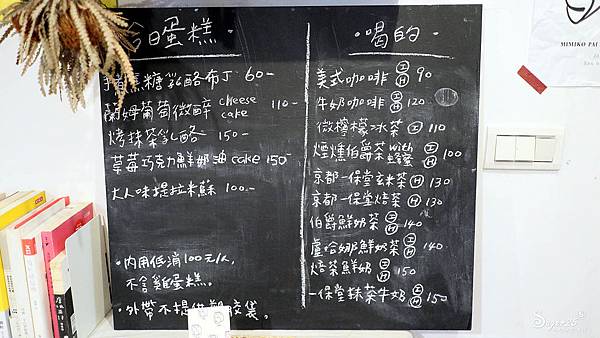 今日蛋糕
手煮焦糖乳酪布丁 60-
蘭姆葡萄微醉 cheese cake 110-
烤抹茶乳酪 150-
草莓巧克力鮮奶油 cake 150-
大人味提拉米蘇 100-
・內用低消100元/人,
不含雞蛋糕。
・外帶不提供塑膠袋。
・喝的・
美式咖啡 Ⓘ Ⓗ 90
牛奶咖啡 Ⓘ Ⓗ 120
微檸檬冰茶 Ⓘ 110
煙燻伯爵茶 with 蜂蜜 Ⓘ Ⓗ 100
京都一保堂玄米茶 Ⓗ 130
京都一保堂焙茶 Ⓗ 130
伯爵鮮奶茶 Ⓘ Ⓗ 140
盧哈娜鮮奶茶 Ⓘ Ⓗ 140
焙茶鮮奶 Ⓘ Ⓗ 150
一保堂抹茶牛奶 Ⓘ Ⓗ 150
MIMIKO PAI